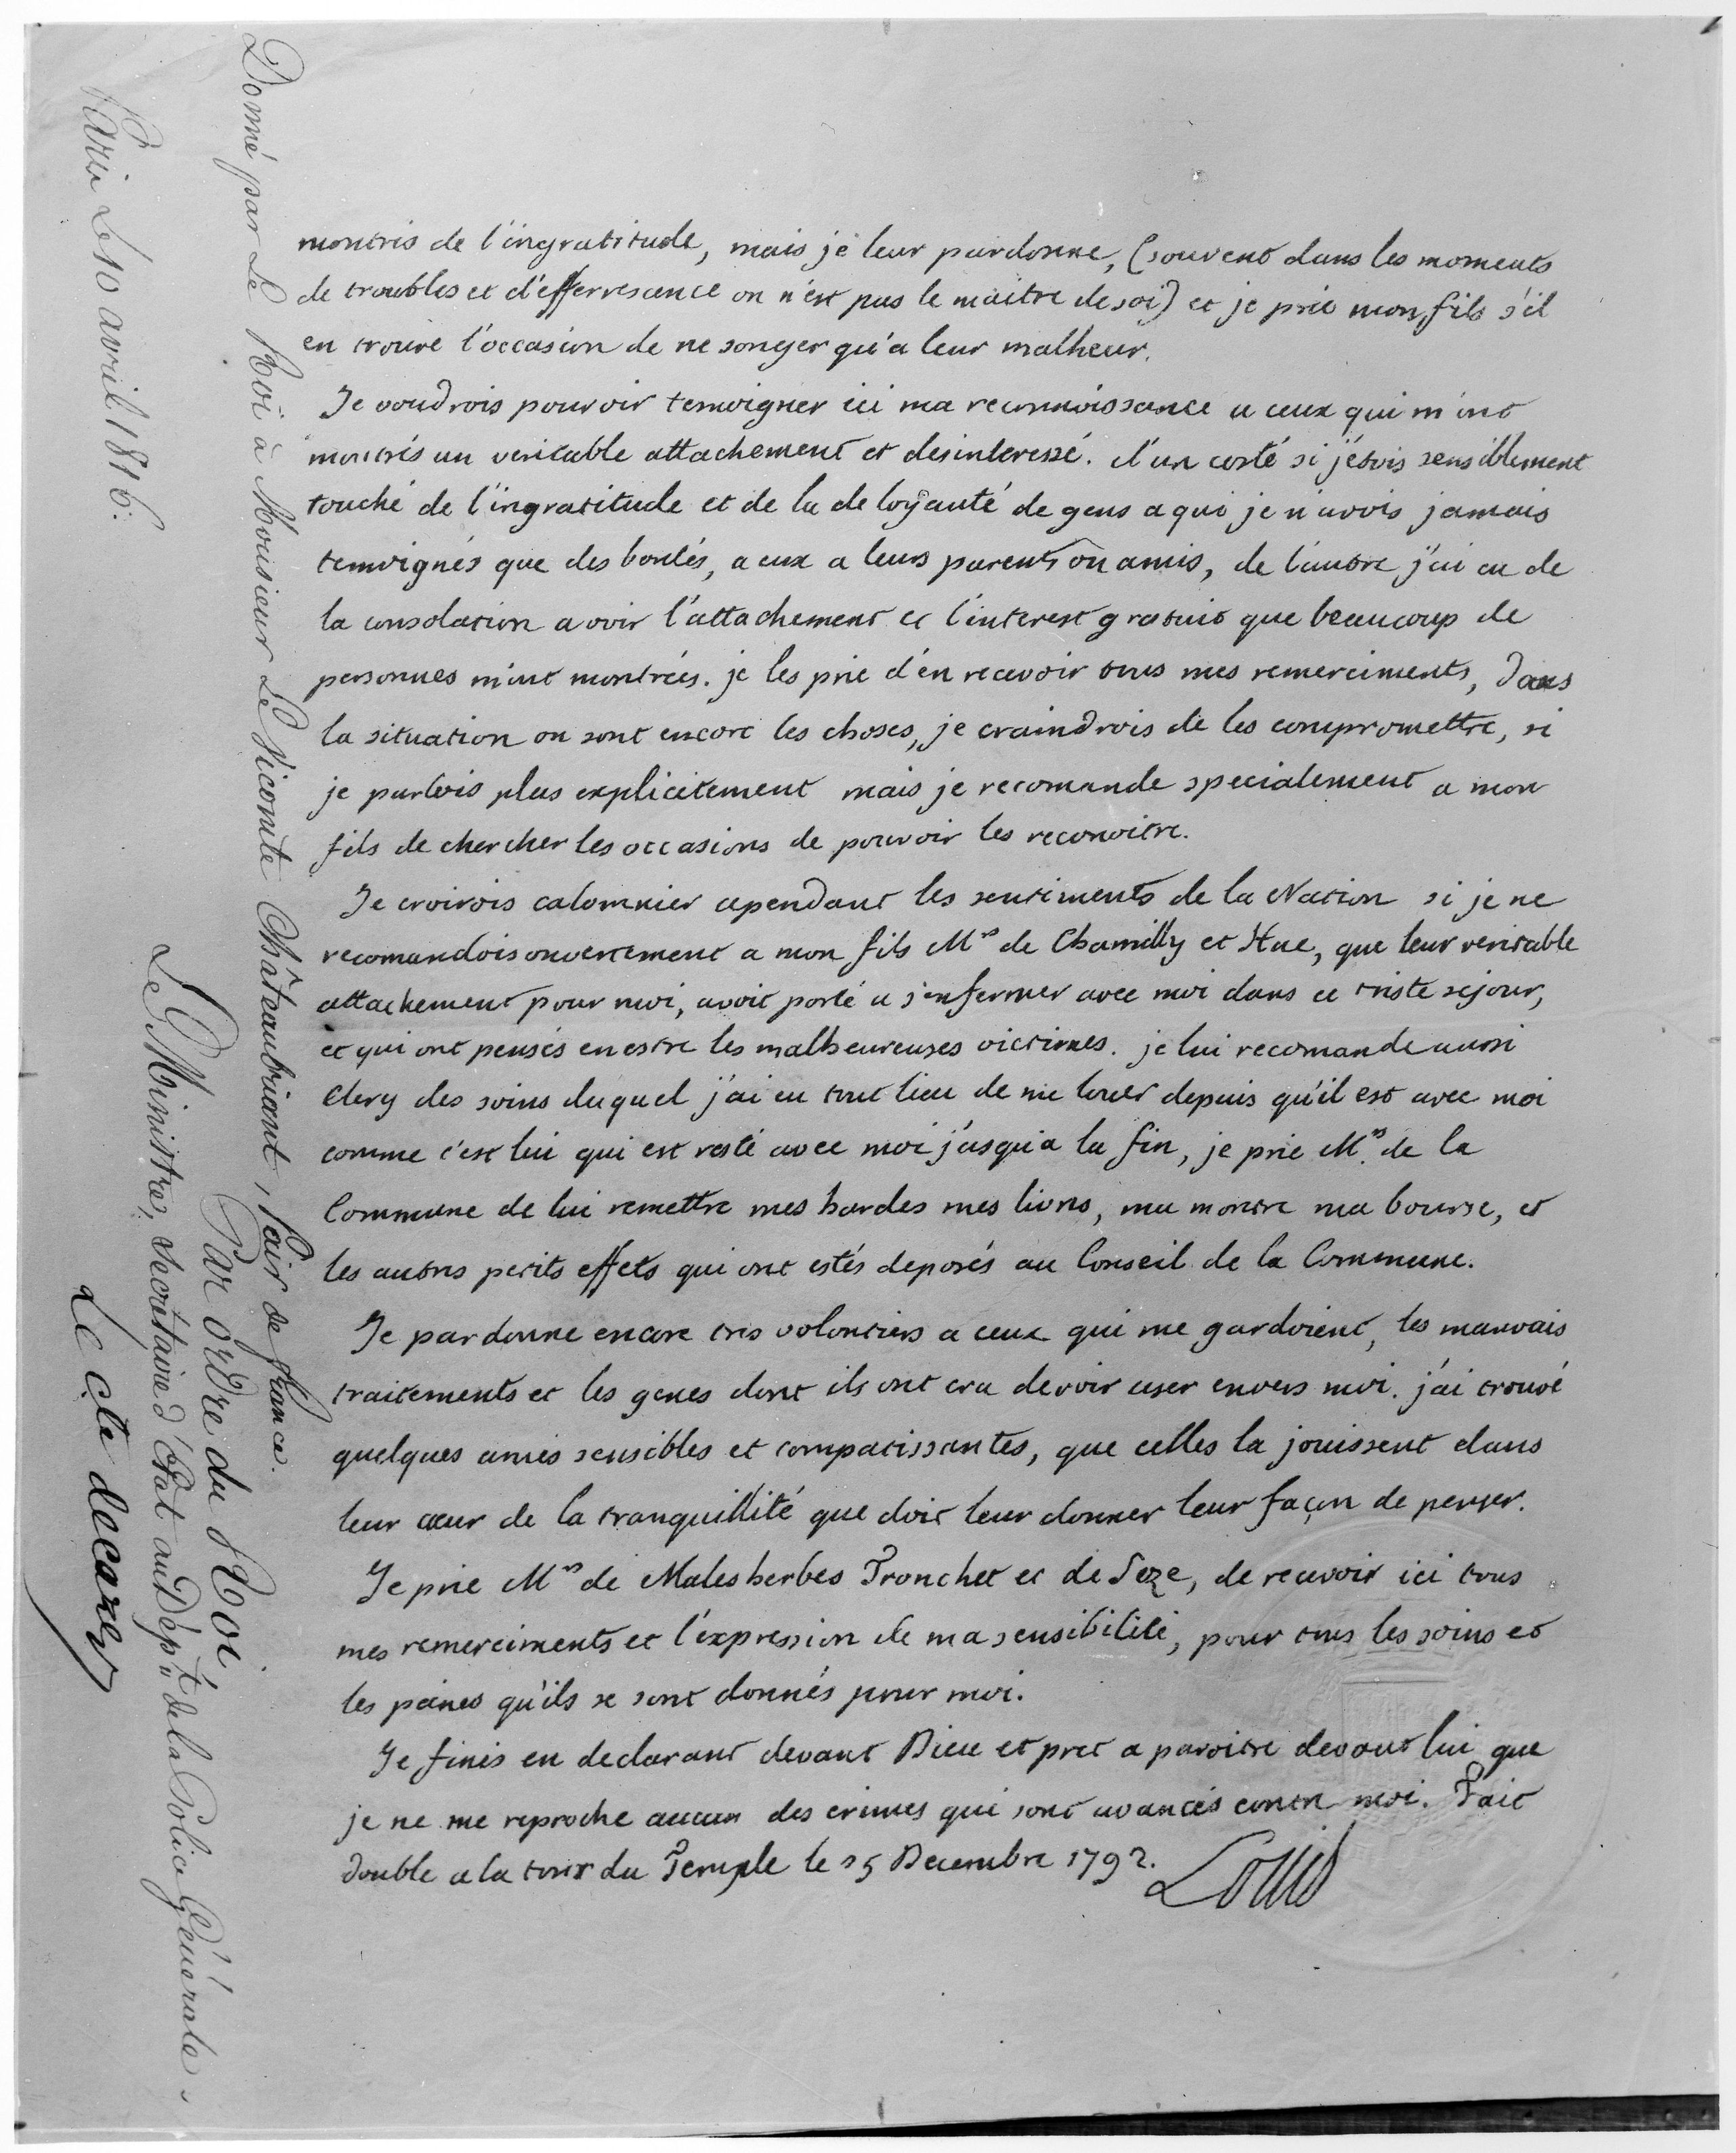 montrés de l'ingratitude, mais je leur pardonne, (souvent dans les moments
de troubles et d'effervescence on n'est pas le maitre de soi) et je prie mon fils s'il
en trouve l'occasion de ne songer qu'a leur malheur.
Je voudrois pouvoir temoigner ici ma reconnoissance a ceux qui m'ont
montrés un veritable attachement et desinteressé. d'un costé si j'étois sensiblement
touché de l'ingratitude et de la deloyauté de gens a qui je n'avois jamais
temoignés que des bontés, a eux a leurs parents ou amis, de l'autre j'ai eu de
la consolation a voir l'attachement et l'interest gratuit que beaucoup de
personnes m'ont montrées. je les prie d'en recevoir tous mes remerciments, dans
la situation ou sont encore les choses, je craindrois de les compromettre, si
je parlois plus explicitement mais je recomande specialement a mon
fils de chercher les occasions de pouvoir les reconoitre.
Je croirois calomnier cependant les sentiments de la Nation si je ne
recomandois ouvertement a mon fils Mrs de Chamilly et Hue, que leur veritable
attachement pour moi, avoit porté a s'enfermer avec moi dans ce triste sejour,
et qui ont pensés en estre les malheureuses victimes. je lui recomande aussi
Clery des soins duquel j'ai eu tout lieu de me louer depuis qu'il est avec moi
comme c'est lui qui est resté avec moi jusqu'a la fin, je prie Mrs de la
Commune de lui remettre mes hardes mes livres, ma montre ma bourse, et
les autres petits effets qui ont estés deposés au Conseil de la Commune.
Je pardonne encore tres volontiers a ceux qui me gardoient, les mauvais
traitements et les genes dont ils ont cru devoir user envers moi. j'ai trouvé
quelques ames sensibles et compatissantes, que celles la jouissent dans
leur cœur de la tranquillité que doit leur donner leur façon de penser.
Je prie Mrs de Malesherbes Tronchet et de Seze, de recevoir ici tous
mes remerciments et l'expression de ma sensibilité, pour tous les soins et
les peines qu'ils se sont donnés pour moi.
Je finis en declarant devant Dieu et pret a paroitre devant lui que
je ne me reproche aucun des crimes qui sont avancés contre moi. Fait
double a la tour du Temple le 25 Decembre 1792.
Louis
Donné par Le Roi à Monsieur Le Vicomte Châteaubriant, Pair de france.
Par ordre du Roi
Le Ministre, Secrétaire d'État au Dépt. de la Police Générale,
Le cte decazes
Paris Le 10 avril 1816.